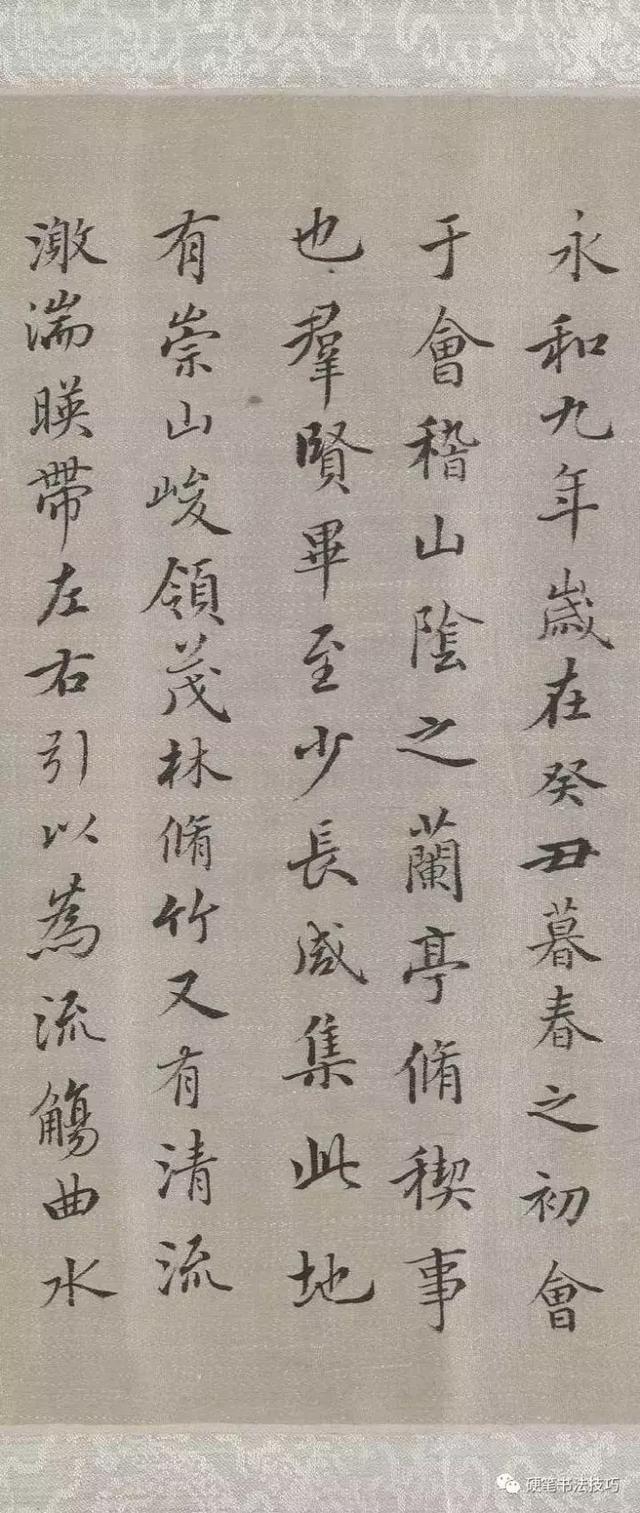 永和九年歲在癸丑暮春之初會
于會稽山陰之蘭亭脩稧事
也羣賢畢至少長咸集此地
有崇山峻領茂林脩竹又有清流
激湍暎帶左右引以為流觴曲水
硬笔书法技巧